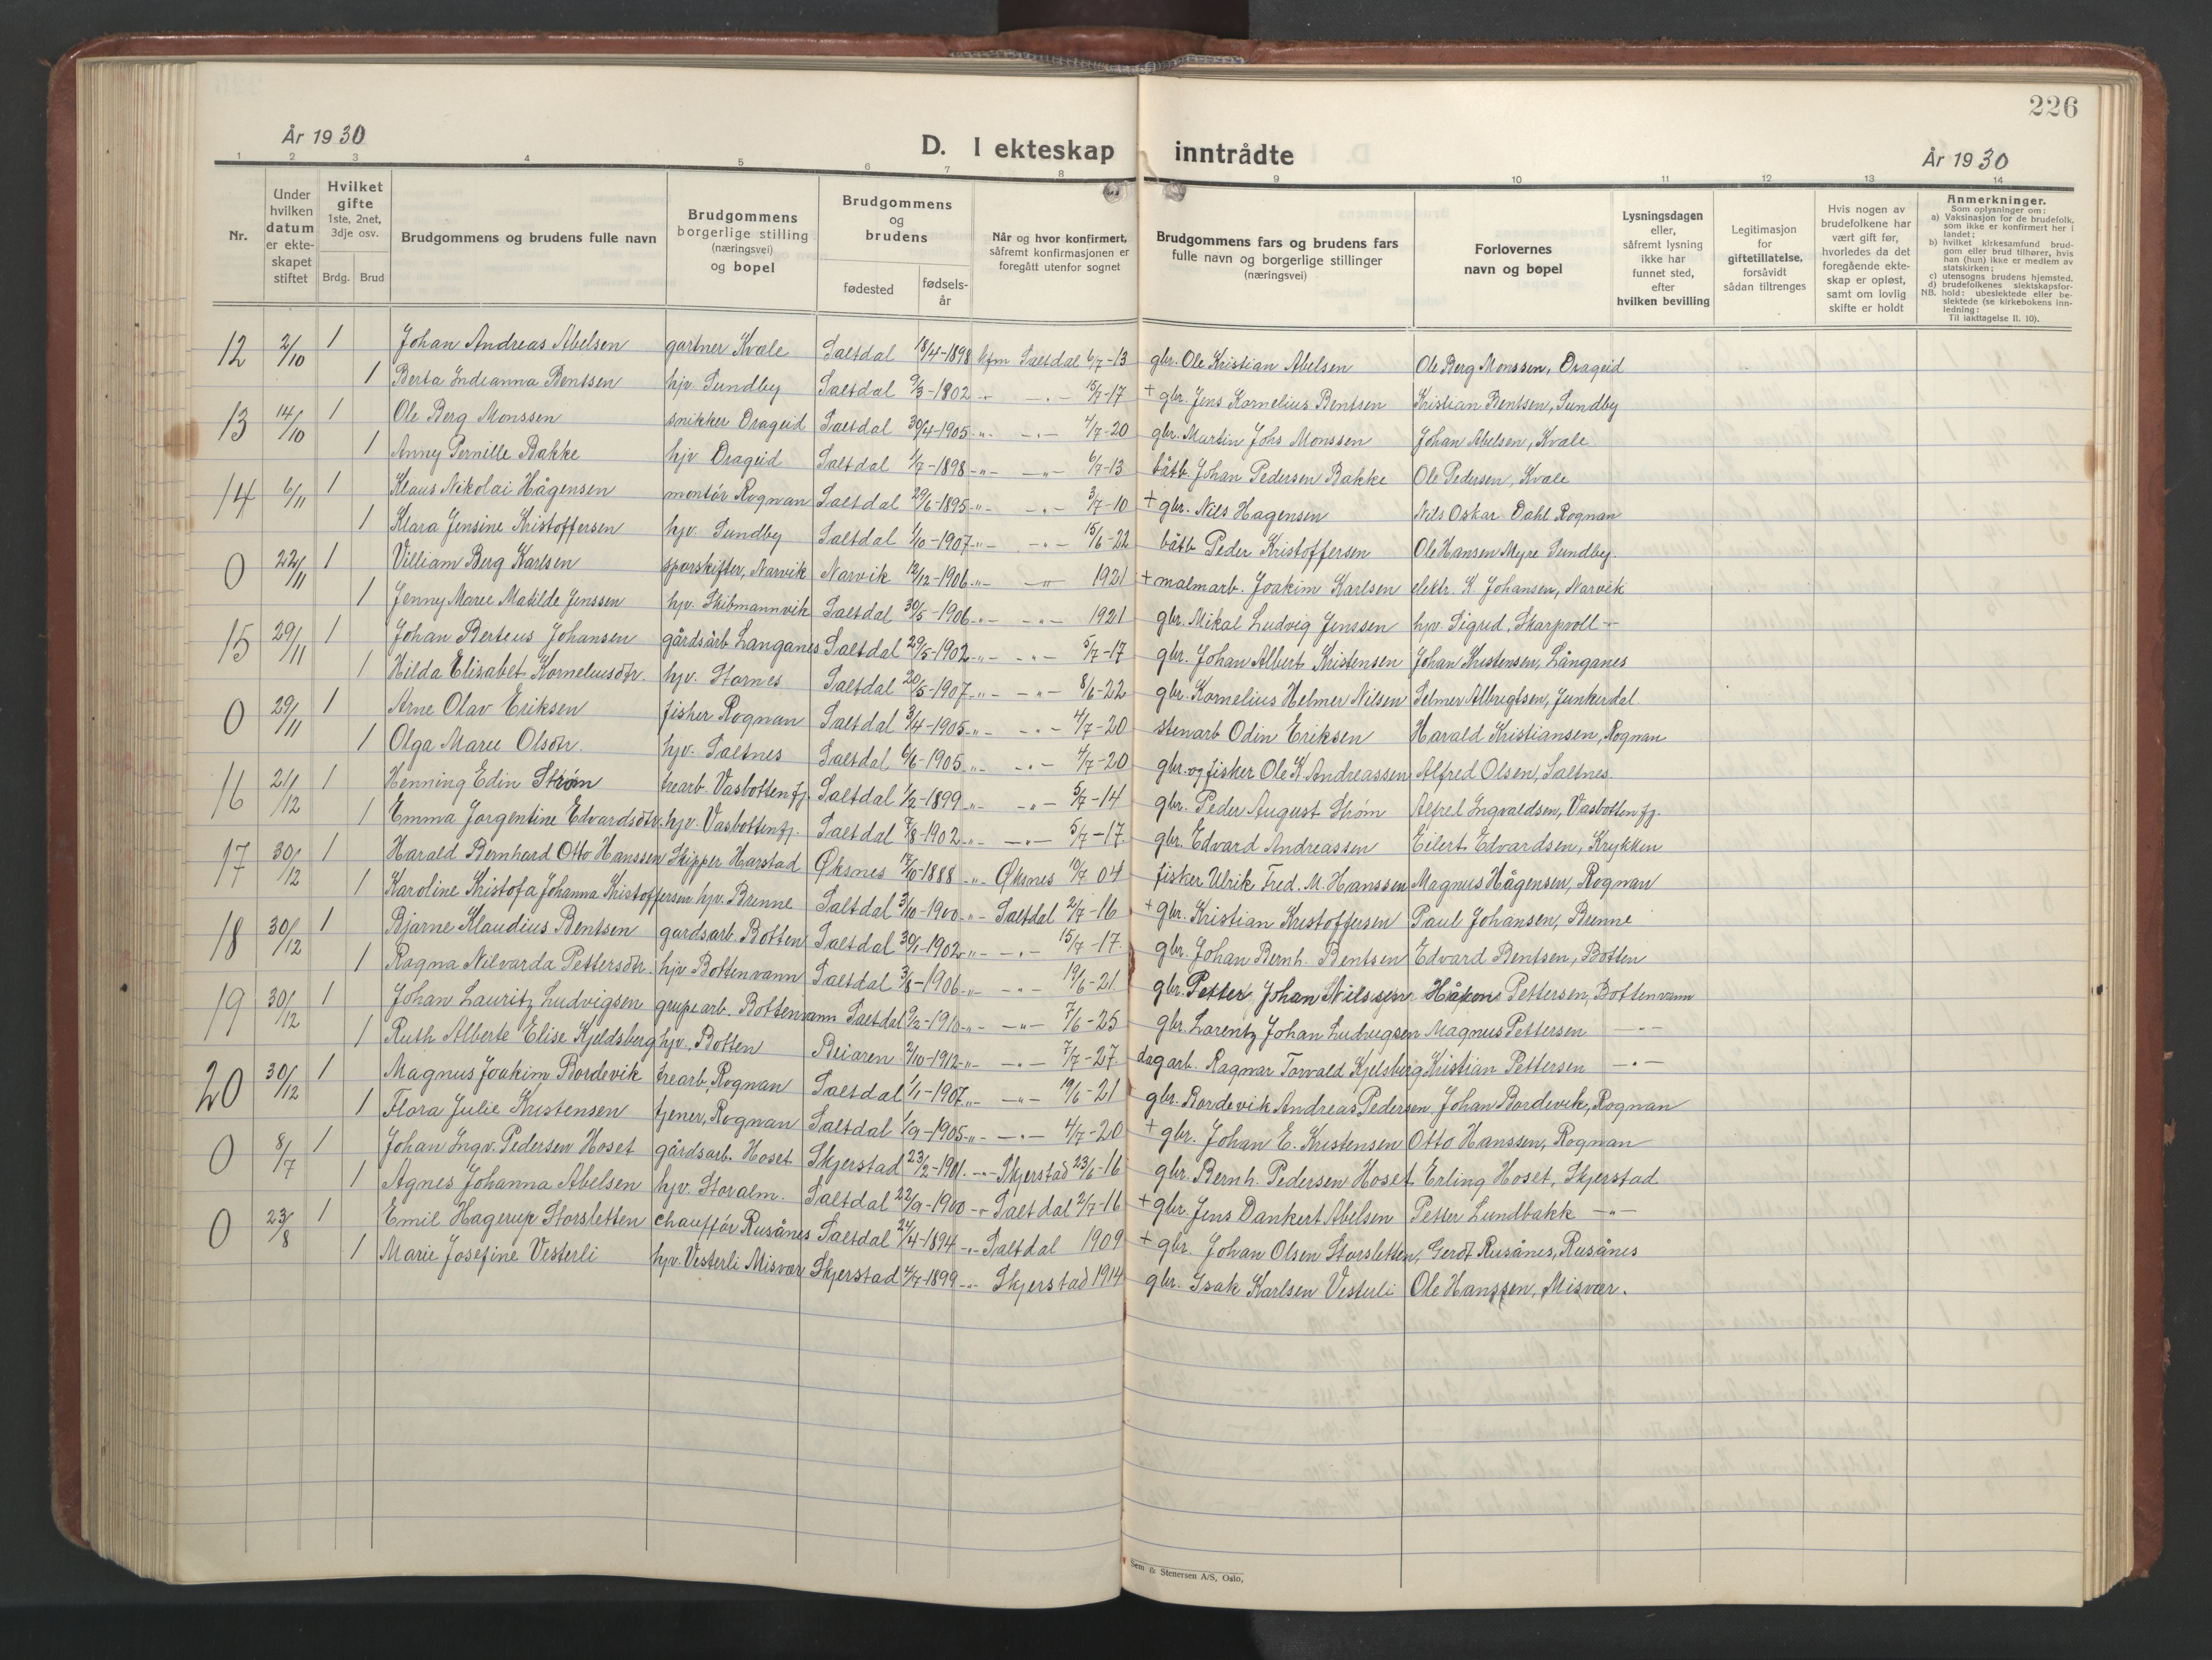 226
År 1930
D. I ekteskap inntrådte
År 1930
1 2 3 4 5 6 7 8 9 10 11 12 13 14
Nr.
Under hvilken datum er ekteskapet stiftet
Hvilket gifte 1ste, 2net, 3dje osv.
Brdg. Brud
Brudgommens og brudens fulle navn
Brudgommens borgerlige stilling (næringsvei) og bopel
Brudgommens og brudens
fødested
fødselsår
Når og hvor konfirmert, såfremt konfirmasjonen er foregått utenfor sognet
Brudgommens fars og brudens fars fulle navn og borgerlige stillinger (næringsvei)
Forlovernes navn og bopel
Lysningsdagen eller, såfremt lysning ikke har funnet sted, efter hvilken bevilling
Legitimasjon for giftetillatelse, forsåvidt sådan tiltrenges
Hvis nogen av brudefolkene har vært gift før, hvorledes da det foregående ekteskap er opløst, samt om lovlig skifte er holdt
Anmerkninger.
Som oplysninger om:
a) Vaksinasjon for de brudefolk, som ikke er konfirmert her i landet;
b) hvilket kirkesamfund brudgom eller brud tilhører, hvis han (hun) ikke er medlem av statskirken;
c) utensogns brudens hjemsted.
d) brudefolkenes slektskapsforhold: ubeslektede eller beslektede (se kirkebokens innledning:
NB.
Til iakttagelse II. 10).
12 2/10 1 Johan Andreas Abelsen gartner Kvæle Saltdal 18/4-1898 kfm Saltdal 6/7-13 gbr. Ole Kristian Abelsen Ole Berg Monssen, Drageid
1 Berta Indianna Bentsen hjv. Sundby Saltdal 9/3-1902 -"- -"- 15/7-17 + gbr. Jens Kornelius Bentsen Kristian Bentsen, Sundby
13 14/10 1 Ole Berg Monssen snikker Drageid Saltdal 30/4-1905 -"- -"- 4/7-20 gbr. Martin Johs Monssen Johan Abelsen, Kvæle
1 Anny Pernille Bakke hjv Drageid Saltdal 1/7-1898 -"- -"- 6/7-13 båtb. Johan Pedersen Bakke Ole Pedersen, Kvæle
14 6/11 1 Klaus Nikolai Hågensen montør Rognan Saltdal 29/6-1895 -"- -"- 3/7-10 + gbr. Nils Hagensen Nils Oskar Dahl Rognan
1 Klara Jensine Kristoffersen hjv. Sundby Saltdal 1/10-1907 -"- -"- 15/6-22 båtb Peder Kristoffersen Ole Hansen Myre Sundby.
0 22/11 1 Villiam Berg Karlsen sporskifter, Narvik Narvik 12/12-1906 -"- -"- 1921 + malmarb. Joakim Karlsen elektr. K. Johansen, Narvik
1 Jenny Marie Matilde Jenssen hjv. Skibmannvik Saltdal 30/5-1906 -"- -"- 1921 gbr. Mikal Ludvig Jenssen hjv. Sigrid, Skarpvoll -"-
15 29/11 1 Johan Berteus Johansen gårdsarb Langanes Saltdal 29/5-1902 -"- -"- 5/7-17 gbr. Johan Albert Kristensen Johan Kristensen, Långanes
1 Hilda Elisabet Korneliusdtr. hjv. Stornes Saltdal 20/5-1907 -"- -"- 8/6-22 gbr. Kornelius Helmer Nilsen Selmer Albrigtsen, Junkerdal.
0 29/11 1 Arne Olav Eriksen fisher Rognan Saltdal 3/4-1905 -"- -"- 4/7-20 stenarb Odin Eriksen Harald Kristiansen, Rognan
1 Olga Marie Olsdtr. hjv. Saltnes Saltdal 6/6-1905 -"- -"- 4/7-20 gbr. og fisker Ole K. Andreassen Alfred Olsen, Saltnes.
16 21/12 1 Henning Edin Strøm trearb. Vasbottenfj. Saltdal 1/2-1899 -"- -"- 5/7-14 gbr. Peder August Strøm Alfred Ingvaldsen, Vasbotten fj.
1 Emma Jorgentine Edvardsdtr. hjv. Vasbottenfj. Saltdal 7/8-1902 -"- -"- 5/7-17. gbr. Edvard Andreassen Eilert Edvardsen, Krykken
17 30/12 1 Harald Bernhard Otto Hanssen Skipper Harstad Øksnes 12/10-1888 -"- Øksnes 10/7 04 fisker Ulrik Fred. M. Hanssen Magnus Hågensen, Rognan
1 Karoline Kristofa Johanna Kristoffersen hjv. Brenne Saltdal 3/10-1900 -"- Saltdal 2/7-16 + gbr. Kristian Kristoffersen Paul Johansen, Brenne
18 30/12 1 Bjarne Klaudius Bentsen gardsarb. Botten Saltdal 30/1-1902 -"- -"- 15/7-17. gbr. Johan Bernh. Bentsen Edvard Bentsen, Botten
1 Ragna Nilvarda Pettersdtr. hjv Bottenvann Saltdal 3/8-1906 -"- -"- 19/6-21 gbr. Petter Johan Nilsssen Håkon Pettersen, Bottenvann
19 30/12 1 Johan Lauritz Ludvigsen grupearb. Bottenvann Saltdal 9/2-1910 -"- -"- 7/6-25 gbr. Larentz Johan Ludvigsen Magnus Pettersen -"-
1 Ruth Alberte Elise Kjeldsberg hjv. Botten Beiaren 2/10-1912 -"- -"- 7/7-27 dagarb. Ragnar Torvald Kjelsberg Kristian Pettersen -"-
20 30/12 1 Magnus Joakim Bordevik trearb. Rognan Saltdal 1/1-1907 -"- -"- 19/6-21 gbr. Bordevik Andreas Pedersen Johan Bordevik, Rognan
1 Flora Julie Kristensen tjener, Rognan Saltdal 1/9-1905 -"- -"- 4/7-20 + gbr. Johan E. Kristensen Otto Hanssen, Rognan
0 8/7 1 Johan Ingv. Pedersen Hoset gårdsarb. Hoset Skjerstad 23/2-1901. -"- Skjerstad 23/6-16 gbr. Bernh. Pedersen Hoset Erling Hoset, Skjerstad
1 Agnes Johanna Abelsen hjv. Storalm. Saltdal 22/9-1900 -"- Saltdal 2/7-16 + gbr. Jens Dankert Abelsen Petter Lundbakk -"-
0 23/8 1 Emil Hagerup Storsletten chauffør Rusånes Saltdal 24/4-1894 -"- Saltdal 1909 + gbr. Johan Olsen Storsletten, Gerdt Rusånes, Rusånes
1 Marie Josefine Vesterli hjv. Vesterli Misvær Skjerstad 4/7-1899 -"- Skjerstad 1914 gbr. Isak Karlsen Vesterli Ole Hanssen, Misvær.
Sem & Stenersen A/S, Oslo,